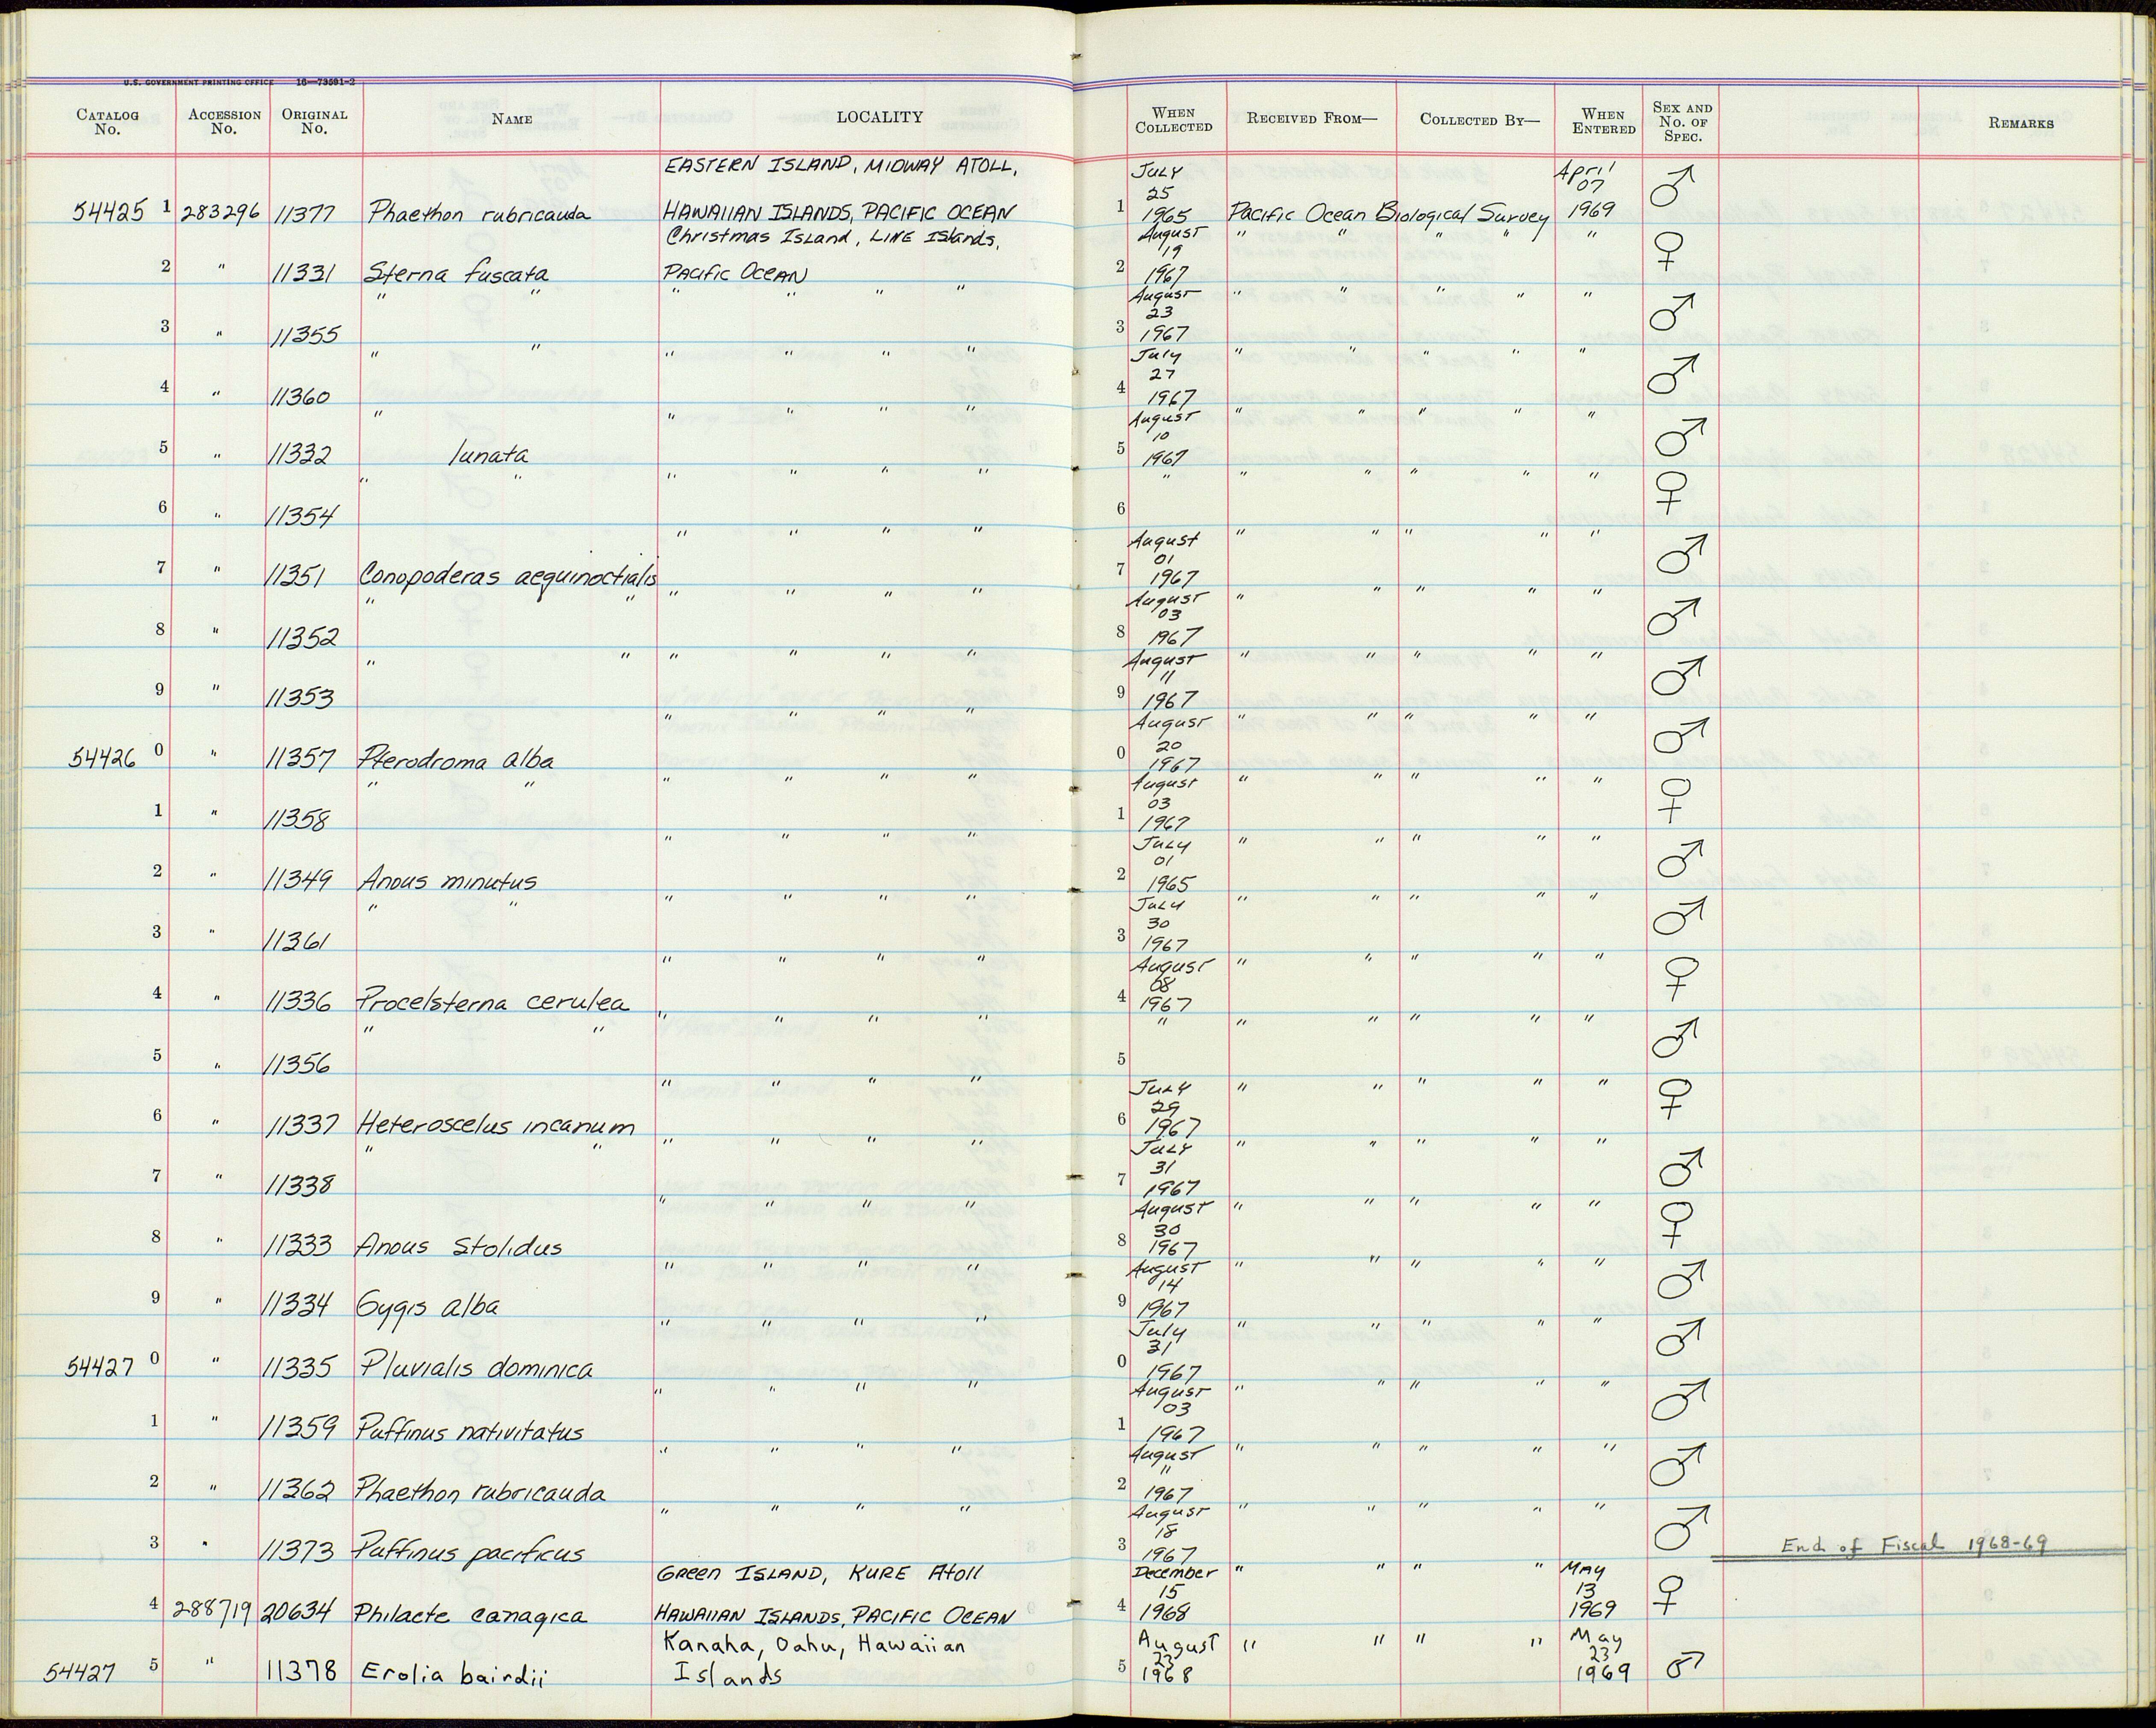 U.S. GOVERNMENT PRINTING OFFICE 16—73591-2
CATALOG No. ACCESSION No. ORIGINAL No. NAME LOCALITY WHEN COLLECTED RECEIVED FROM— COLLECTED BY— WHEN ENTERED SEX AND No. OF SPEC. REMARKS
EASTERN ISLAND, MIDWAY ATOLL, JULY 25 April 07
54425 1 283296 11377 Phaethon rubricauda HAWAIIAN ISLANDS, PACIFIC OCEAN 1 1965 Pacific Ocean Biological Survey 1969 ♂
Christmas Island, LINE Islands, August 19 " " " " "
2 " 11331 Sterna fuscata PACIFIC OCEAN 2 1967 ♀
" " " " " " August 23 " " " " "
3 " 11355 3 1967 ♂
" " " " " " July 27 " " " " "
4 " 11360 4 1967 ♂
" " " " " August 10 " " " " "
5 " 11332 lunata 5 1967 ♂
" " " " " " " " " " " "
6 " 11354 6 ♀
" " " " August 01 " " " " "
7 " 11351 Conopoderas aequinoctialis 7 1967 ♂
" " " " " " August 03 " " " " "
8 " 11352 8 1967 ♂
" " " " " " August " " " " " "
9 " 11353 9 1967 ♂
" " " " August 20 " " " " "
54426 0 " 11357 Pterodroma alba 0 1967 ♂
" " " " " " August 03 " " " " "
1 " 11358 1 1967 ♀
" " " " JULY 01 " " " " "
2 " 11349 Anous minutus 2 1965 ♂
" " " " " " JULY 30 " " " " "
3 " 11361 3 1967 ♂
" " " " August 08 " " " " "
4 " 11336 Procelsterna cerulea 4 1967 ♀
" " " " " " " " " " " "
5 " 11356 5 ♂
" " " " JULY 29 " " " " "
6 " 11337 Heteroscelus incanum 6 1967 ♀
" " " " " " JULY 31 " " " " "
7 " 11338 7 1967 ♂
" " " " August 30 " " " " "
8 " 11333 Anous Stolidus 8 1967 ♀
" " " " August 14 " " " " "
9 " 11334 Gygis alba 9 1967 ♂
" " " " July 31 " " " " "
54427 0 " 11335 Pluvialis dominica 0 1967 ♂
" " " " August 03 " " " " "
1 " 11359 Puffinus nativitatus 1 1967 ♂
" " " " August " " " " " "
2 " 11362 Phaethon rubricauda 2 1967 ♂
" " " " August 18 " " " " "
3 " 11373 Puffinus pacificus 3 1967 ♂ End of Fiscal 1968-69
GREEN ISLAND, KURE Atoll December 15 " " " " MAY 13
4 288719 20634 Philacte canagica HAWAIIAN ISLANDS, PACIFIC OCEAN 4 1968 1969 ♀
Kanaha, Oahu, Hawaiian August 23 " " " " May 23
54427 5 " 11378 Erolia bairdii Islands 5 1968 1969 ♂